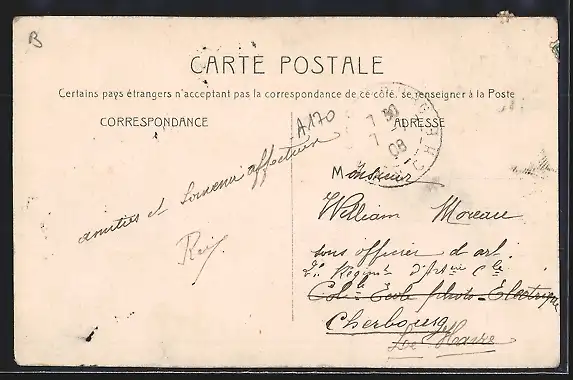 B
CARTE POSTALE
Certains pays étrangers n'acceptant pas la correspondance de ce côté, se renseigner à la Poste
CORRESPONDANCE
A170
ADRESSE
7 30
7 - 1
08
amitiés et souvenir affectueux
Monsieur
William Moreau
sous officier d'art.
2e Régimt d'Artie Cle
Cole Ecole photo-Electrique
Cherbourg
Le Havre